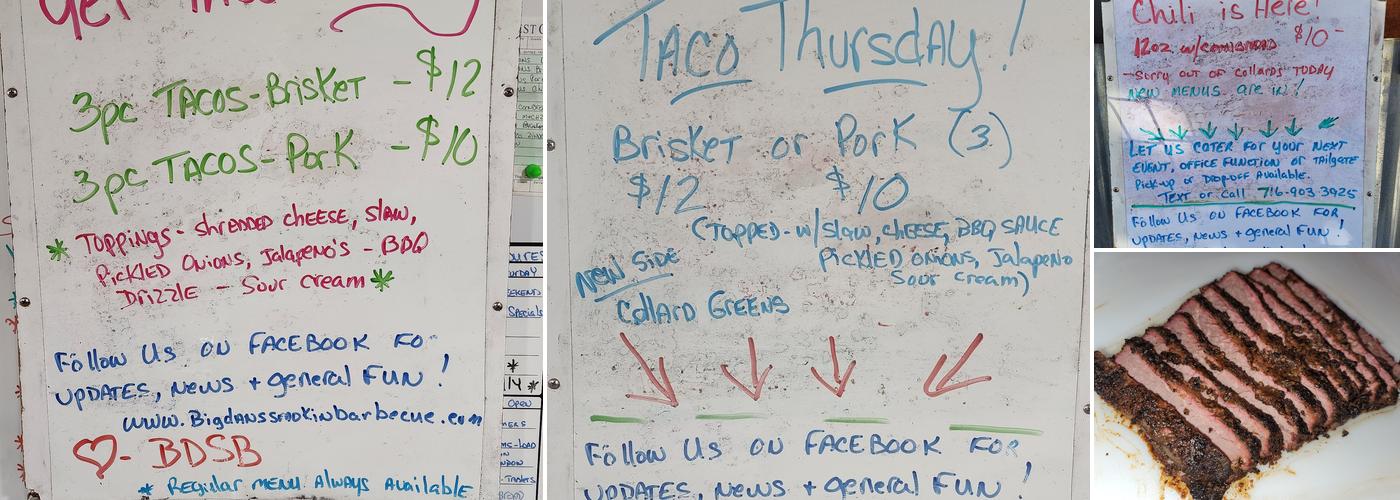 Get
3pc TACOS-BrisKET - $12
3pc TACOS-PorK - $10
* TOPPINGS - SHREDDED CHEESE, SLAW,
PICKLED ONIONS, JALAPENO'S - BBQ
DRIZZLE - Sour cream *
Follow Us ON FACEBOOK FO
UPDATES, NEWS + general FUN!
www.Bigdanssmokinbarbecue.com
♡- BDSB
* Regular MENU Always Available
TACO Thursday!
BrisKET or PorK (3)
$12 $10
(TOPPED - w/ Slaw, CHEESE, BBQ SAUCE
PICKLED ONIONS, Jalapeno
Sour cream)
NEW SIDE
Collard GREENS
Follow Us ON FACEBOOK FOR
UPDATES, NEWS + general FUN!
Chili is Here!
12oz w/cornbread $10-
-Sorry out of collards TODAY
NEW MENUS are in!
LET US CATER FOR YOUR NEXT
EVENT, OFFICE FUNCTION or TAILGATE
Pick-up or Drop-off Available.
TEXT or call 716-903-3925
Follow Us ON FACEBOOK FOR
UPDATES, NEWS + general FUN!